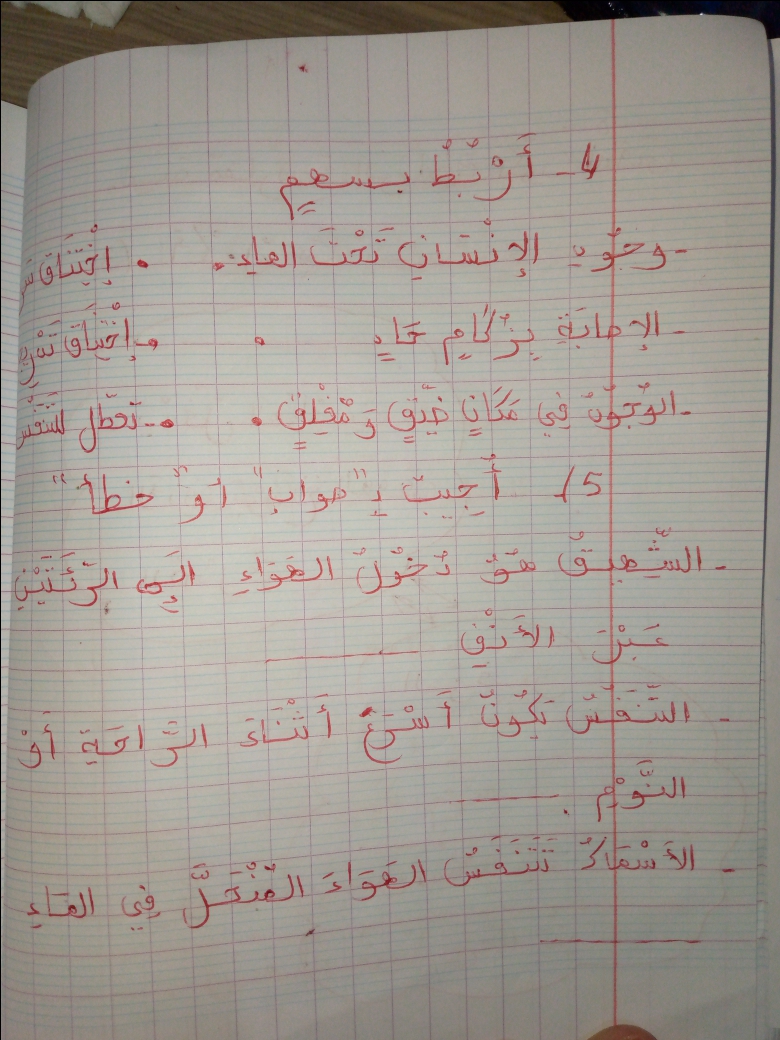 4- أَرْبُطُ بسهمٍ
- وجُودِ الإنْسَانِ تَحْتَ الماءِ. • إخْتِنَاق
- الإصابَةِ بِزُكَامٍ حَادٍ • • إخْتِنَاق
- الوُجُودُ فِي مَكَانٍ ضَيِّقٍ وَ مُغْلِقٍ • • تعطّل التنفس
5/ أُجِيبُ بِ "صواب" أو "خطأ"
- الشَّهِيقُ هُوَ دُخُولُ الهَوَاءِ إلَى الرِّئَتَيْنِ
عَبْرَ الأَنْفِ ________
- التَّنَفُسُ يَكُونُ أَسْرَعَ أَثْنَاءَ الرَّاحَةِ أَوْ
النَّوْمِ . ________
- الأَسْمَاكُ تَتَنَفَسُ الهَوَاءَ المُنْحَلَّ فِي المَاءِ
________